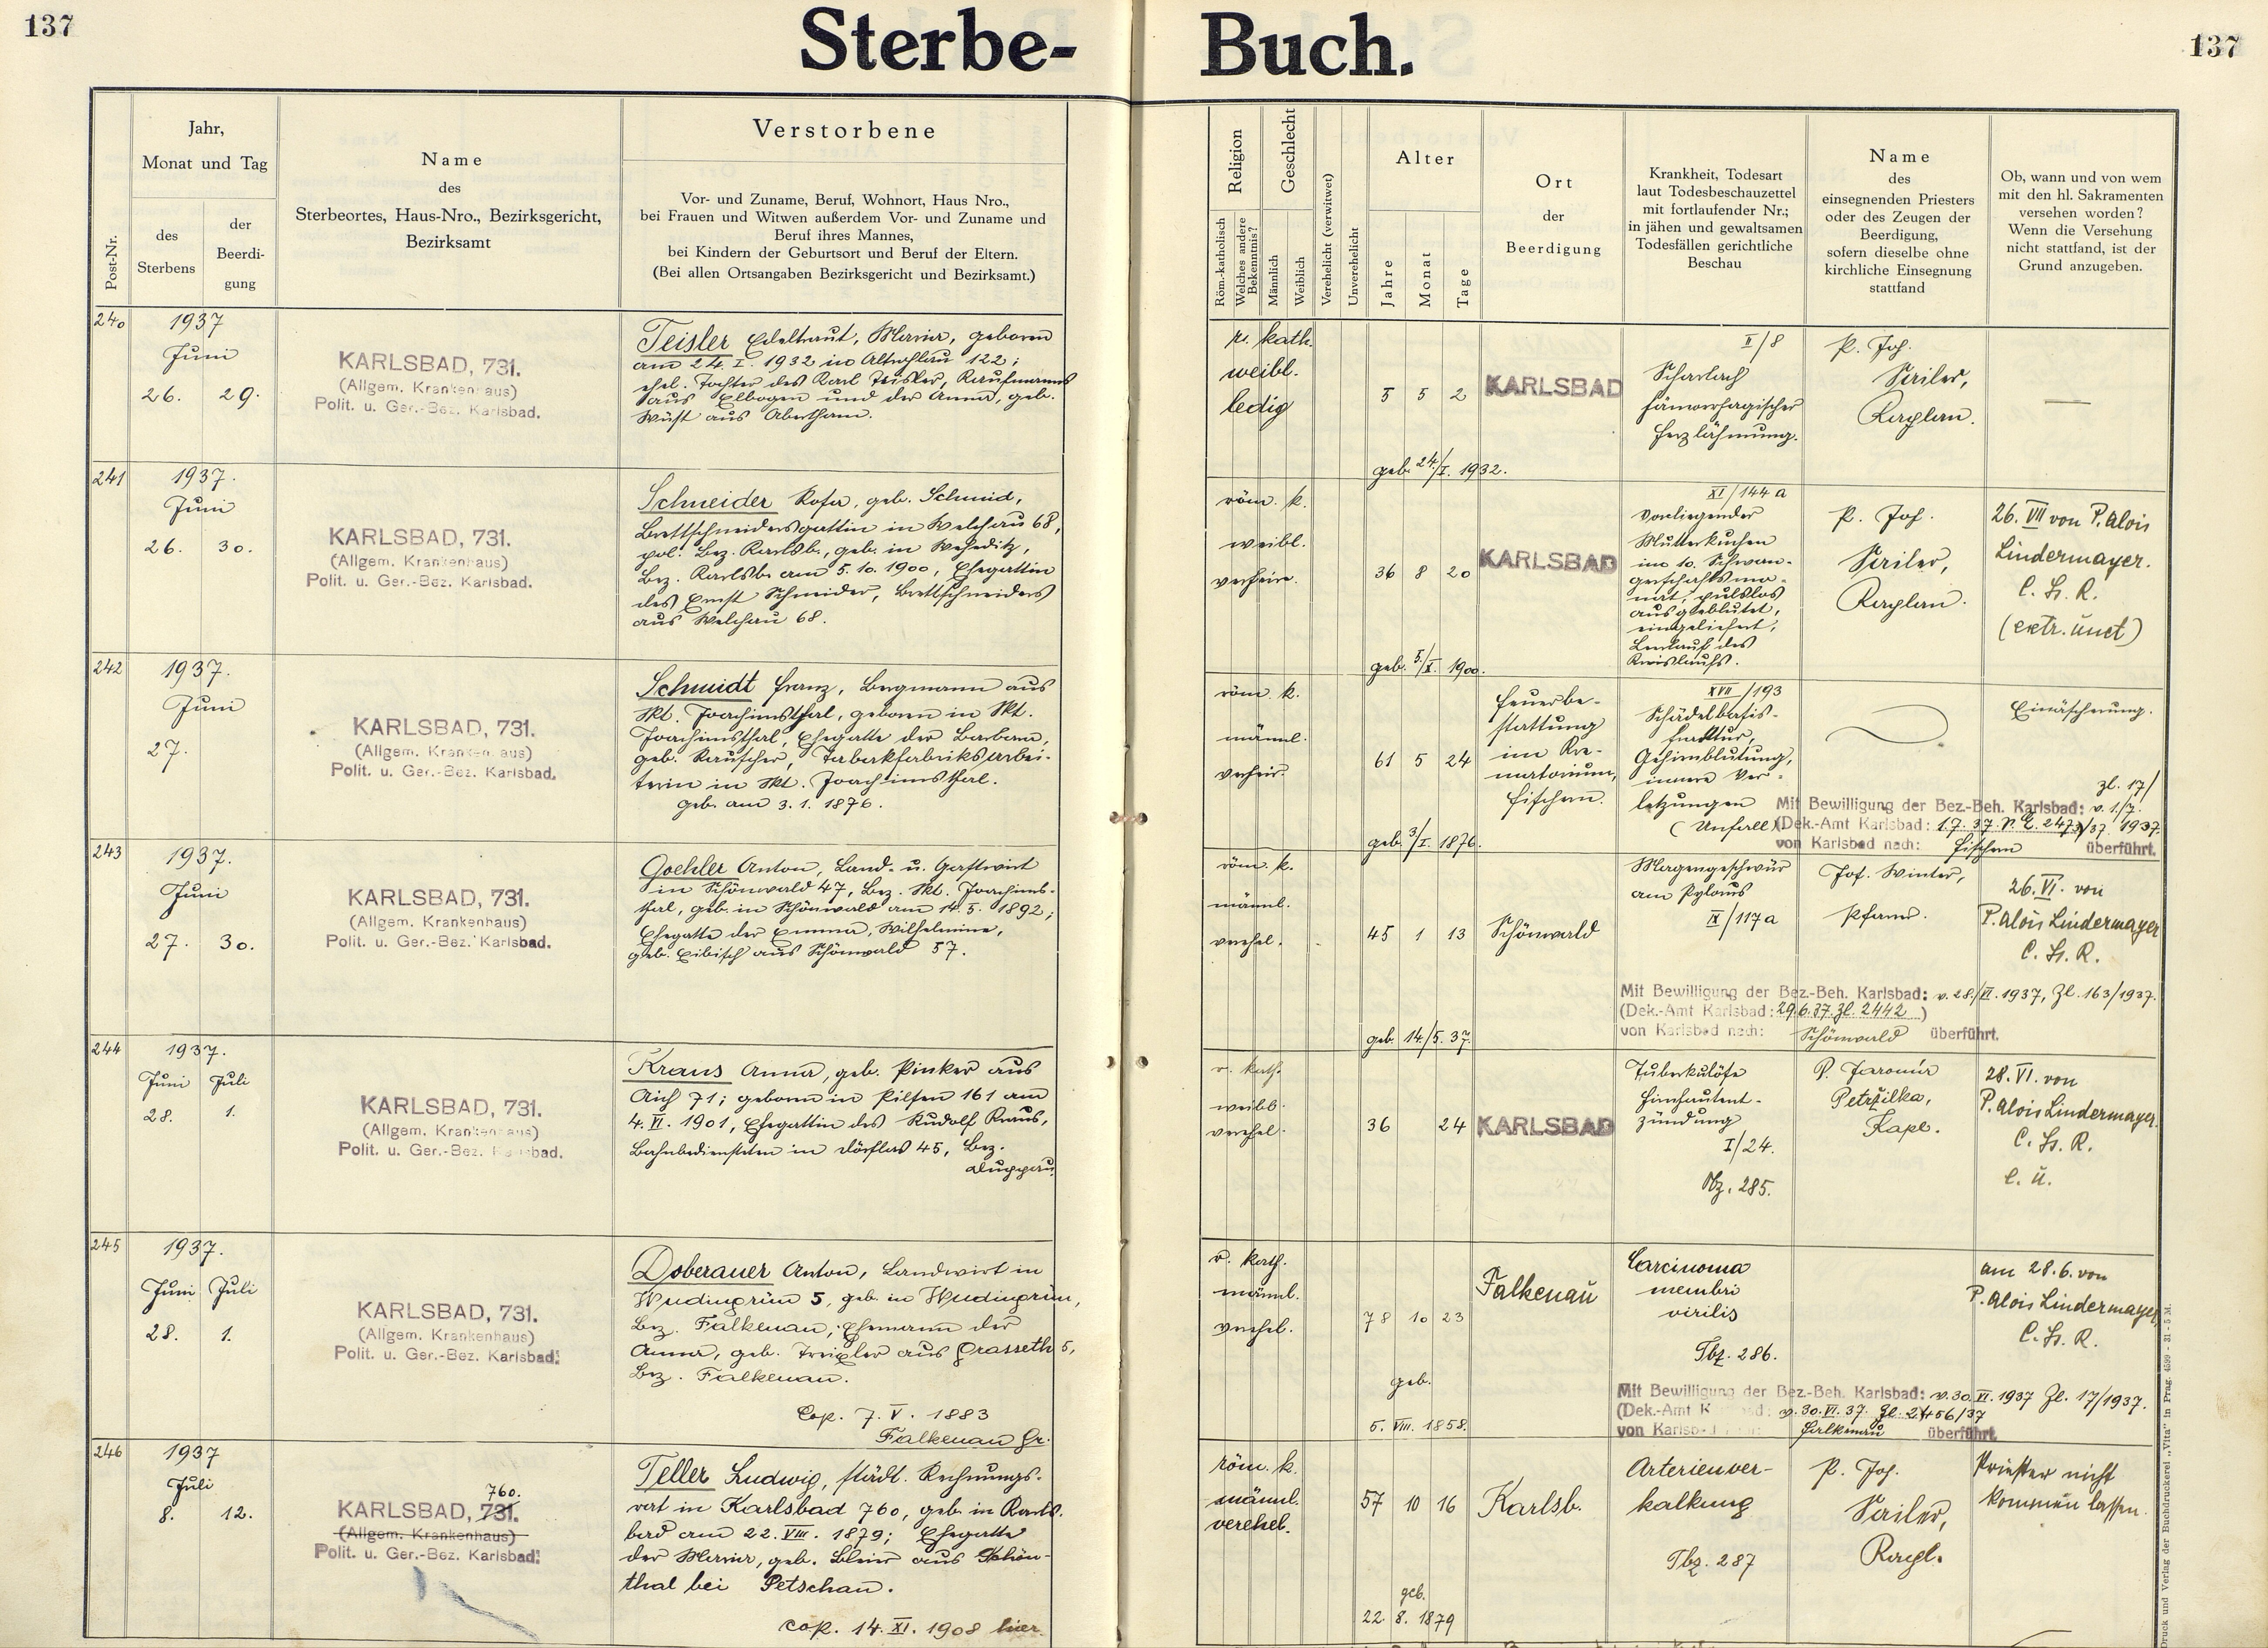 137
Sterbe-
Buch.
137
Post-Nr.
Jahr,
Monat und Tag
des
Sterbens
der
Beerdi-
gung
Name
des
Sterbeortes, Haus-Nro., Bezirksgericht,
Bezirksamt
Verstorbene
Vor- und Zuname, Beruf, Wohnort, Haus Nro.,
bei Frauen und Witwen außerdem Vor- und Zuname und
Beruf ihres Mannes,
bei Kindern der Geburtsort und Beruf der Eltern.
(Bei allen Ortsangaben Bezirksgericht und Bezirksamt.)
Religion
Röm.-katholisch
Welches andere
Bekenntnis?
Geschlecht
Männlich
Weiblich
Verehelicht (verwitwet)
Unverehelicht
Alter
Jahre
Monat
Tage
Ort
der
Beerdigung
Krankheit, Todesart
laut Todesbeschauzettel
mit fortlaufender Nr.;
in jähen und gewaltsamen
Todesfällen gerichtliche
Beschau
Name
des
einsegnenden Priesters
oder des Zeugen der
Beerdigung,
sofern dieselbe ohne
kirchliche Einsegnung
stattfand
Ob, wann und von wem
mit den hl. Sakramenten
versehen worden?
Wenn die Versehung
nicht stattfand, ist der
Grund anzugeben.
240
1937
Juni
26. 29.
KARLSBAD, 731.
(Allgem. Krankenhaus)
Polit. u. Ger.-Bez. Karlsbad.
Teisler Edeltraut, Maria, geboren
am 24. I. 1932 in Altrohlau 122;
ehel. Tochter des Karl Teisler, Kaufmanns
aus Elbogen und der Anna, geb.
Wüst aus Abertham.
r. kath.
weibl.
ledig
5 5 2
geb. 24./I. 1932.
KARLSBAD
II/8
Scharlach
hämorrhagischer
Herzlähmung.
P. Jos.
Sailer,
Kaplan.
—
241
1937.
Juni
26. 30.
KARLSBAD, 731.
(Allgem. Krankenhaus)
Polit. u. Ger.-Bez. Karlsbad.
Schneider Rosa, geb. Schmid,
Brettschneidersgattin in Welchau 68,
pol. Bez. Karlsb., geb. in Weheditz,
Bez. Karlsb. am 5. 10. 1900, Ehegattin
des Ernst Schneider, Brettschneiders
aus Welchau 68.
röm. k.
weibl.
verheir.
36 8 20
geb. 5./X. 1900.
KARLSBAD
XI/144a
Vorliegender
Mutterkuchen
im 10. Schwan-
gerschaftsmo-
nat, pulslos
ausgeblutet,
eingeliefert;
des
Kreislaufs.
P. Jos.
Sailer,
Kaplan.
26. VII von P. Alois
Lindermayer.
C. Ss. R.
(extr. unct)
242
1937.
Juni
27.
KARLSBAD, 731.
(Allgem. Krankenhaus)
Polit. u. Ger.-Bez. Karlsbad.
Schmidt Franz, Bergmann aus
Skt. Joachimsthal, geboren in Skt.
Joachimsthal, Ehegatte der Barbara,
geb. Rauscher, Tabakfabriksarbei-
terin in Skt. Joachimsthal.
geb. am 3. 1. 1876.
röm. k.
männl.
verheir.
61 5 24
geb. 3/I. 1876.
Feuerbe-
stattung
im Kre-
matorium,
Fischern.
XVII/193
Schädelbasis-
fraktur,
Gehirnblutung,
innere Ver-
letzungen
(Unfall)
Einäscherung.
zl. 17/
Mit Bewilligung der Bez.-Beh. Karlsbad: v. 1/7.
(Dek.-Amt Karlsbad: 1.7.37. N. E. 2473/37 1937.
von Karlsbad nach: Fischern überführt.
243
1937.
Juni
27. 30.
KARLSBAD, 731.
(Allgem. Krankenhaus)
Polit. u. Ger.-Bez. Karlsbad.
Goehler Anton, Land- u. Gastwirt
in Schönwald 47, Bez. Skt. Joachims-
thal, geb. in Schönwald am 14. 5. 1892;
Ehegatte der Emma, Wilhelmine,
geb. Eibisch aus Schönwald 57.
röm. k.
männl.
verehel.
45 1 13
geb. 14./5. 37.
Schönwald
Magengeschwür
am Pylorus
IX/117a
Jos. Winter,
Pfarrer.
26. VI. von
P. Alois Lindermayer
C. Ss. R.
Mit Bewilligung der Bez.-Beh. Karlsbad: v. 28./VI. 1937, Zl. 163/1937.
(Dek.-Amt Karlsbad: 29.6.37. Zl. 2442)
von Karlsbad nach: Schönwald überführt.
244
1937.
Juni Juli
28. 1.
KARLSBAD, 731.
(Allgem. Krankenhaus)
Polit. u. Ger.-Bez. Karlsbad.
Kraus Anna, geb. Pinker aus
Aich 71; geboren in Pilsen 161 am
4. VI. 1901, Ehegattin des Rudolf Kraus,
Bahnbediensteten in Dörflas 45, Bez.
Duppau.
r. kath.
weibl.
verehel.
36 24
KARLSBAD
Tuberkulöse
Hirnhautent-
zündung
I/24.
Tbz. 285.
P. Jaromír
Petržilka,
Kapl.
28. VI. von
P. Alois Lindermayer
C. Ss. R.
e. u.
245
1937.
Juni Juli
28. 1.
KARLSBAD, 731.
(Allgem. Krankenhaus)
Polit. u. Ger.-Bez. Karlsbad.
Doberauer Anton, Landwirt in
Wudingrün 5, geb. in Wudingrün,
Bez. Falkenau; Ehemann der
Anna, geb. aus Grasseth 5,
Bez. Falkenau.
Cop. 7. V. 1883
Falkenau Gr.
r. kath.
männl.
verehel.
78 10 23
geb.
5. VIII. 1858.
Falkenau
Carcinoma
membri
virilis
Tbz. 286.
am 28.6. von
P. Alois Lindermayer
C. Ss. R.
Mit Bewilligung der Bez.-Beh. Karlsbad: v. 30. VI. 1937 Zl. 17/1937.
(Dek.-Amt Karlsbad: v. 30. VI. 37. Zl. 2456/37
von Karlsbad nach: Falkenau überführt.
246
1937
Juli
8. 12.
760.
KARLSBAD, 731.
(Allgem. Krankenhaus)
Polit. u. Ger.-Bez. Karlsbad.
Teller Ludwig, städt. Rechnungs-
rat in Karlsbad 760, geb. in Karls-
bad am 22. VIII. 1879; Ehegatte
der Maria, geb. Bleier aus Schön-
thal bei Petschau.
cop. 14. XI. 1908 hier.
röm. k.
männl.
verehel.
57 10 16
geb.
22. 8. 1879
Karlsb.
Arterienver-
kalkung
Tbz. 287
P. Jos.
Sailer,
Kapl.
Priester nicht
kommen lassen.
Druck und Verlag der Buchdruckerei „Vita“ in Prag. 4599 - 31 - 5 M.